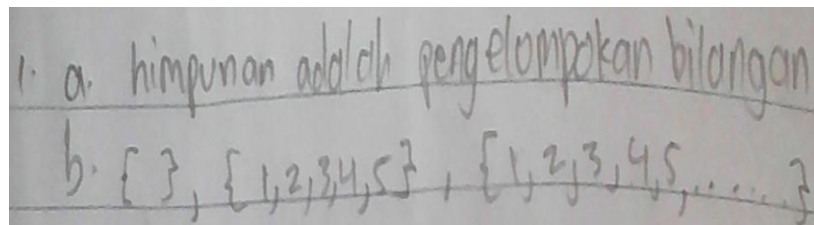 1. a. himpunan adalah pengelompokan bilangan
b. { }, {1,2,3,4,5}, {1,2,3,4,5,.....}